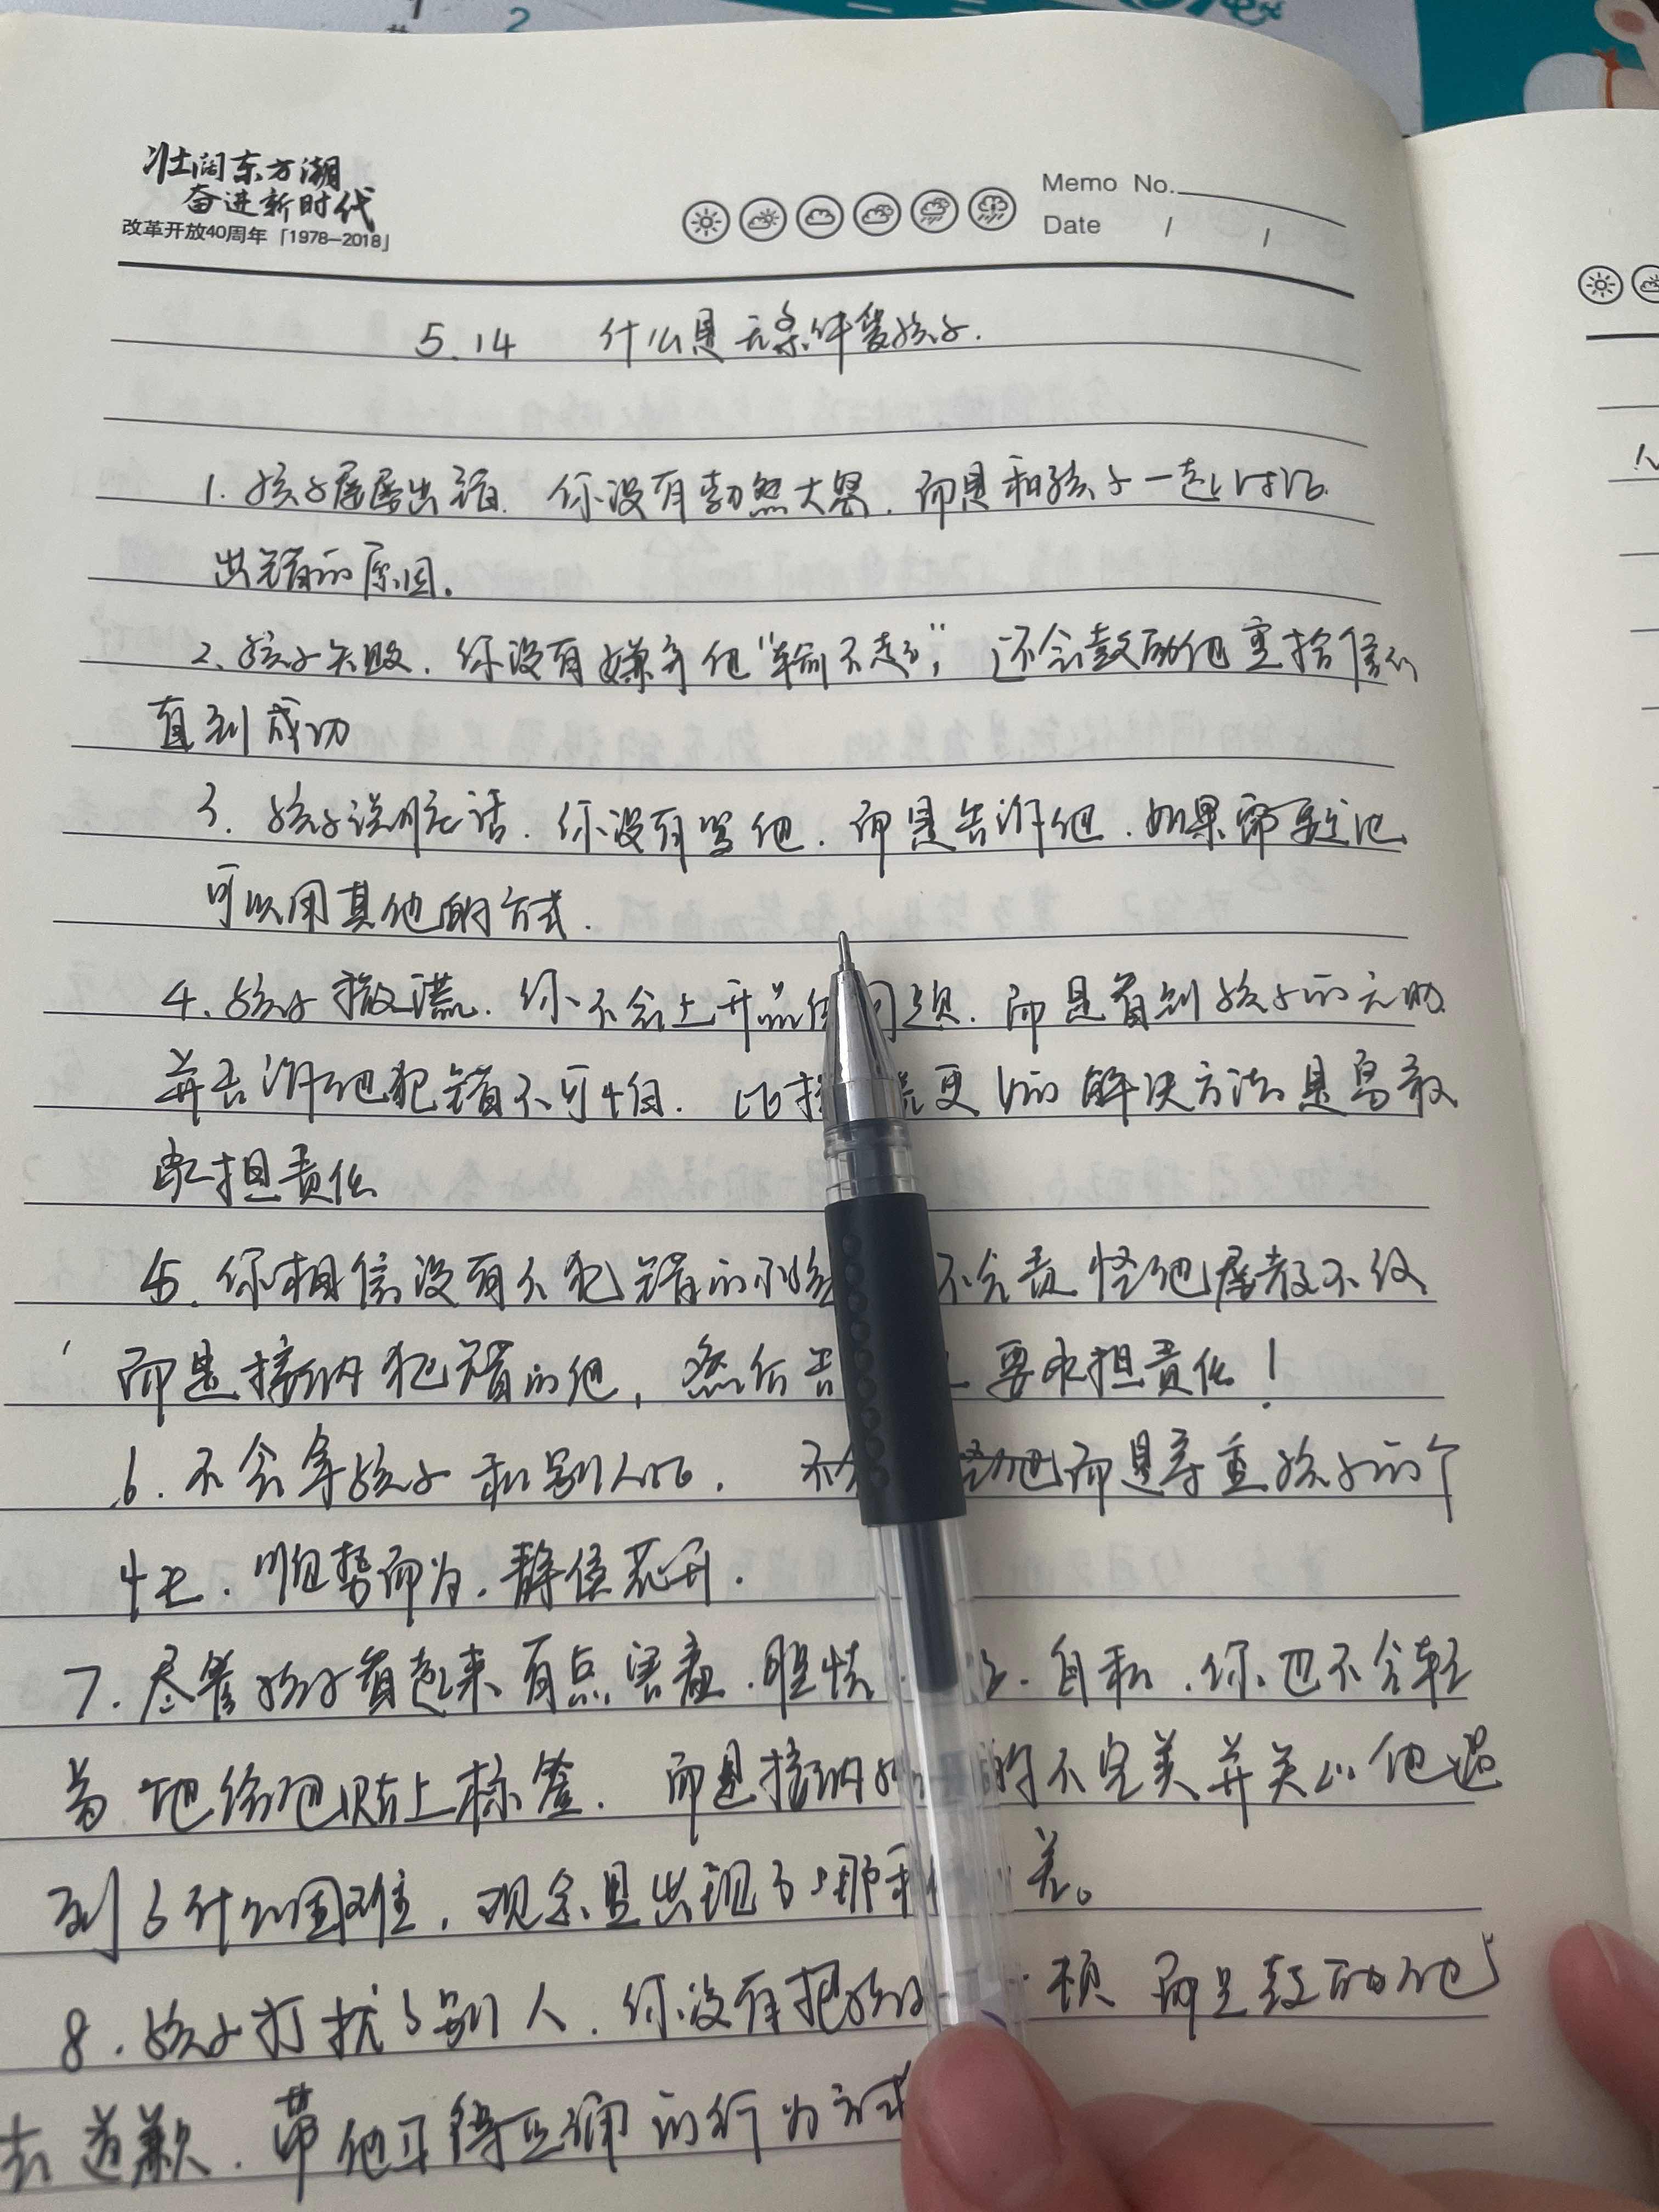 壮阔东方潮
奋进新时代
改革开放40周年「1978-2018」
Memo No.
Date / /
5.14 什么是无条件爱孩子.
1. 孩子屡屡出错. 你没有勃然大怒. 而是和孩子一起讨论
出错的原因.
2. 孩子失败. 你没有嫌弃他"输不起", 还会鼓励他重拾信心
直到成功
3. 孩子说脏话. 你没有骂他. 而是告诉他. 如果需要
可以用其他的方式.
4. 孩子撒谎. 你不会上升 问题. 而是看到孩子的无助
并告诉他犯错不可怕. 比 更 的解决方法是勇敢
承担责任
5. 你相信没有不犯错的 不会责怪他屡教不改
而是接纳犯错的他, 然后告 要承担责任!
6. 不会拿孩子和别人比. 不 他而是尊重孩子的个
性. 顺势而为. 静候花开.
7. 尽管孩子看起来有点害羞. 胆怯 . 自私. 你也不会轻
易地给他贴上标签. 而是接纳 的不完美并关心他遇
到了什么困难, 观察是出现了哪 差。
8. 孩子打扰了别人. 你没有把孩子 顿 而是鼓励他
去道歉. 带他习得正确的行为方式